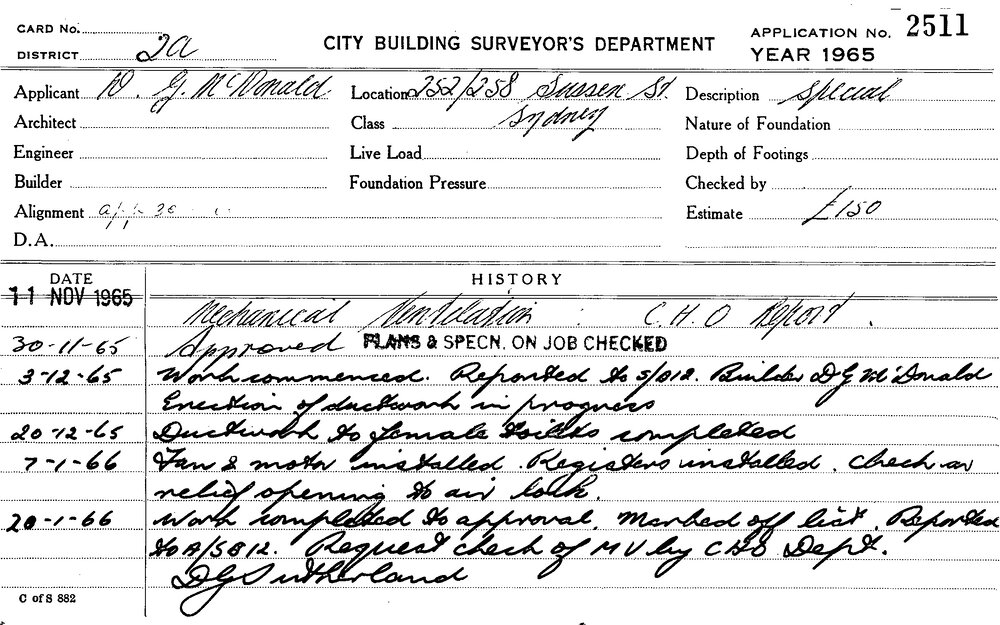 CARD No.
DISTRICT 2a
CITY BUILDING SURVEYOR'S DEPARTMENT
APPLICATION No. 2511
YEAR 1965
Applicant D. G. McDonald Location 252/258 Sussex St. Description Special
Architect Class Sydney Nature of Foundation
Engineer Live Load Depth of Footings
Builder Foundation Pressure Checked by
Alignment Estimate £150
D.A.
DATE HISTORY
11 NOV 1965
Mechanical Ventilation : C.H.O Report.
30-11-65 Approved PLANS & SPECN. ON JOB CHECKED
3-12-65 Work commenced. Reported to S/B12. Builder D G McDonald
Erection of ductwork in progress
20-12-65 Ductwork to female toilets completed
7-1-66 Fan & motor installed. Registers installed. Check air
relief opening to air lock.
20-1-66 Work completed to approval. Marked off list. Reported
to A/SB12. Request check of MV by CHO Dept.
DG Sutherland
C of S 882